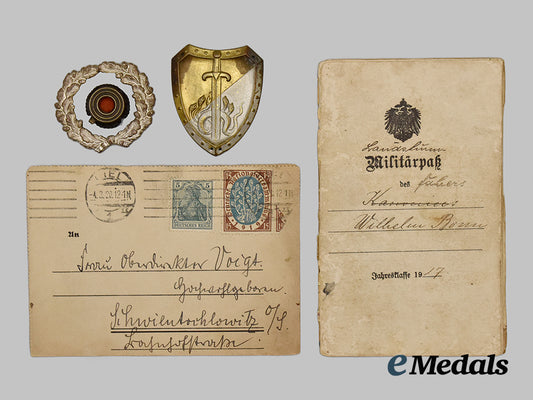 KIEL
4.3.20.12-1N
5
5
DEUTSCHES REICH
An
Frau Oberdirektor Voigt.
Hochwohlgeboren
Schwientochlowitz O/S.
Bahnhofstraße.
Landsturm
Militärpaß
des
Wilhelm
Jahresklasse 1917
eMedals